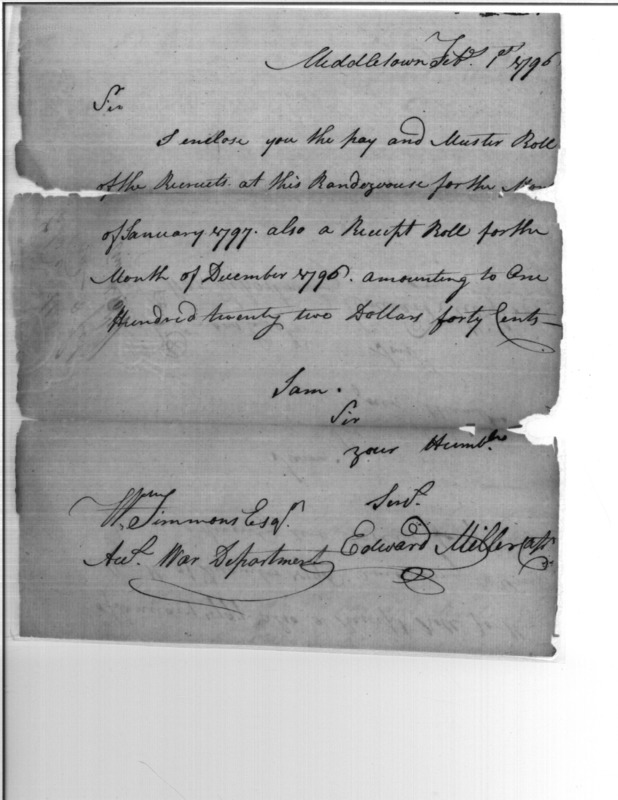 Middletown Feb. 1st 1796
Sir
I enclose you the pay and Muster Roll
of the Recruits at this Randezvouse for the Mon
of January 1797. also a Receipt Roll for the
Month of December 1796. amounting to One
Hundred twenty two Dollars forty Cents
I am.
Sir
your Humble
Servt.
Wm Simmons Esqr.
Acct. War Department
Edward Miller Capt.